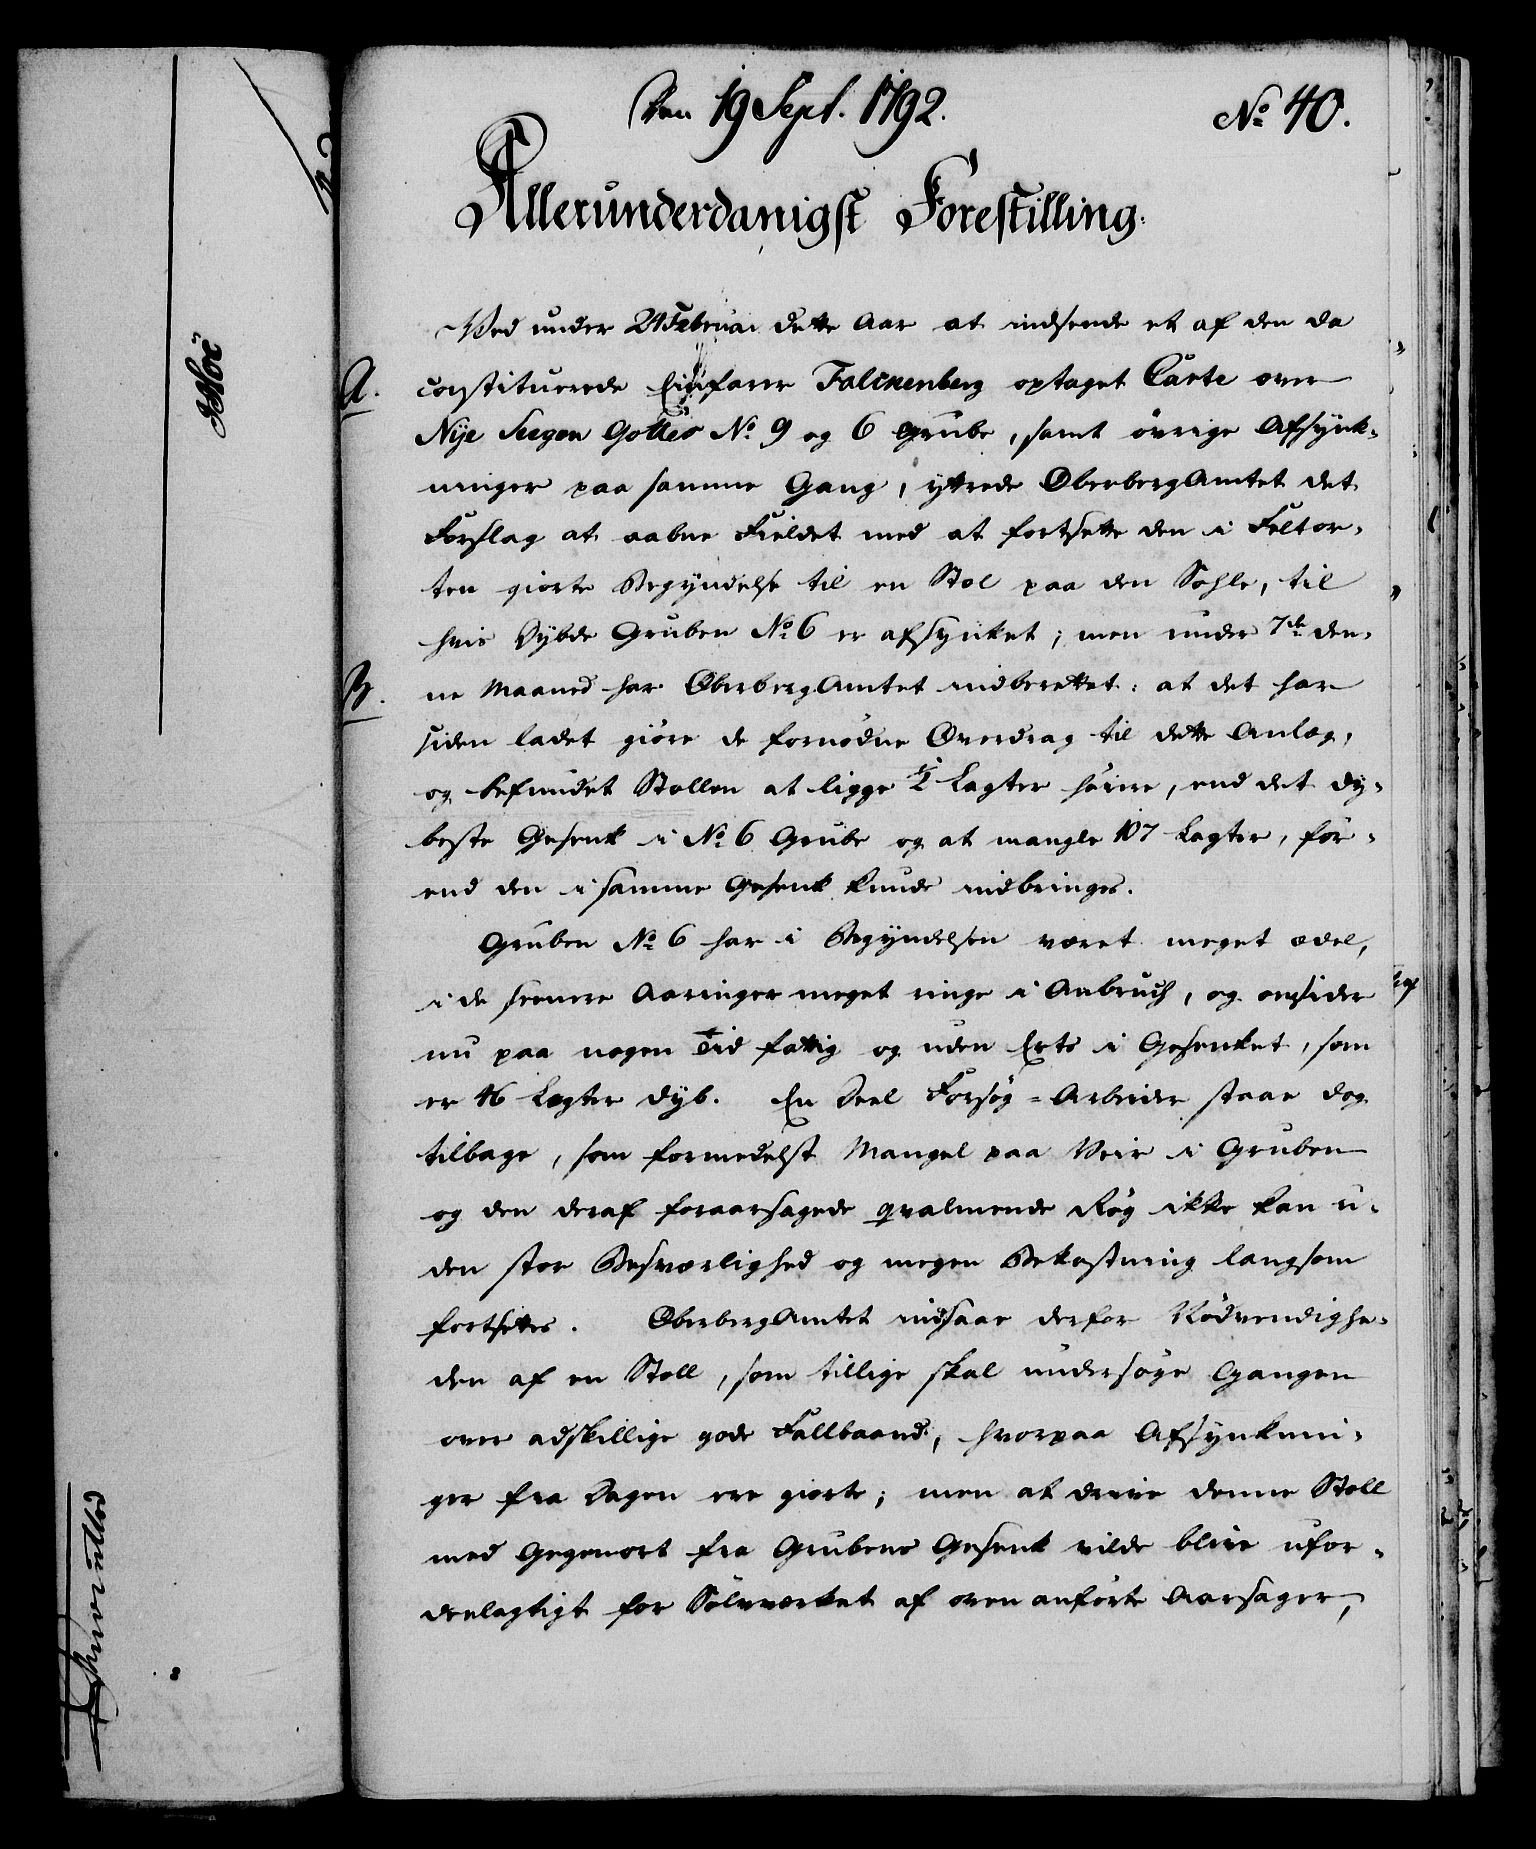 Den 19 Sept. 1792.
No 40.
Allerunderdanigst Forestilling.
Ved under 21 Februar dette Aar at indsende et af den da
A. constituerede Einfarer Falckenberg optaget Carte over
Nye Seegen Gottes No 9 og 6 Grube, samt øvrige Afsynk-
ninger paa samme Gang, yttrede OberbergAmtet det
Forslag at aabne Fieldet med at fortsette den i Feltor-
ten giorte Begyndelse til en Stol paa den Sohle, til
hvis Dybde Gruben No 6 er afsynket; men under 7de den-
B. ne Maaned har OberbergAmtet indberettet: at det har
siden ladet giøre de fornødne Overdrag til dette Anlæg,
og befundet Stollen at ligge 1/2 Lagter høiere, end det dy-
beste Gesenk i No 6 Grube og at mangle 107 Lagter, før-
end den i samme Gesenk kunde indbringes.
Gruben No 6 har i Begyndelsen været meget ædel,
i de seenere Aaringer meget ringe i Anbruch, og omsider
nu paa nogen Tid fattig og uden Erts i Gesenket, som
er 46 Lagter dyb. En Deel Forsøg-Arbeider staar dog
tilbage, som formedelst Mangel paa Veir i Gruben
og den deraf foraarsagede qvalmende Røg ikke kan u-
den stor Besværlighed og megen Bekostning langsom
fortsettes. OberbergAmtet indsaae derfor Nødvendighe-
den af en Stoll, som tillige skal undersøge Gangen
over adskillige gode Fallbaand, hvorpaa Afsynknin-
ger fra Dagen ere giorte; men at drive denne Stoll
med Gegenort fra Grubens Gesenk vilde blive ufor-
deelagtigt for Sølvverket af oven anførte Aarsager,